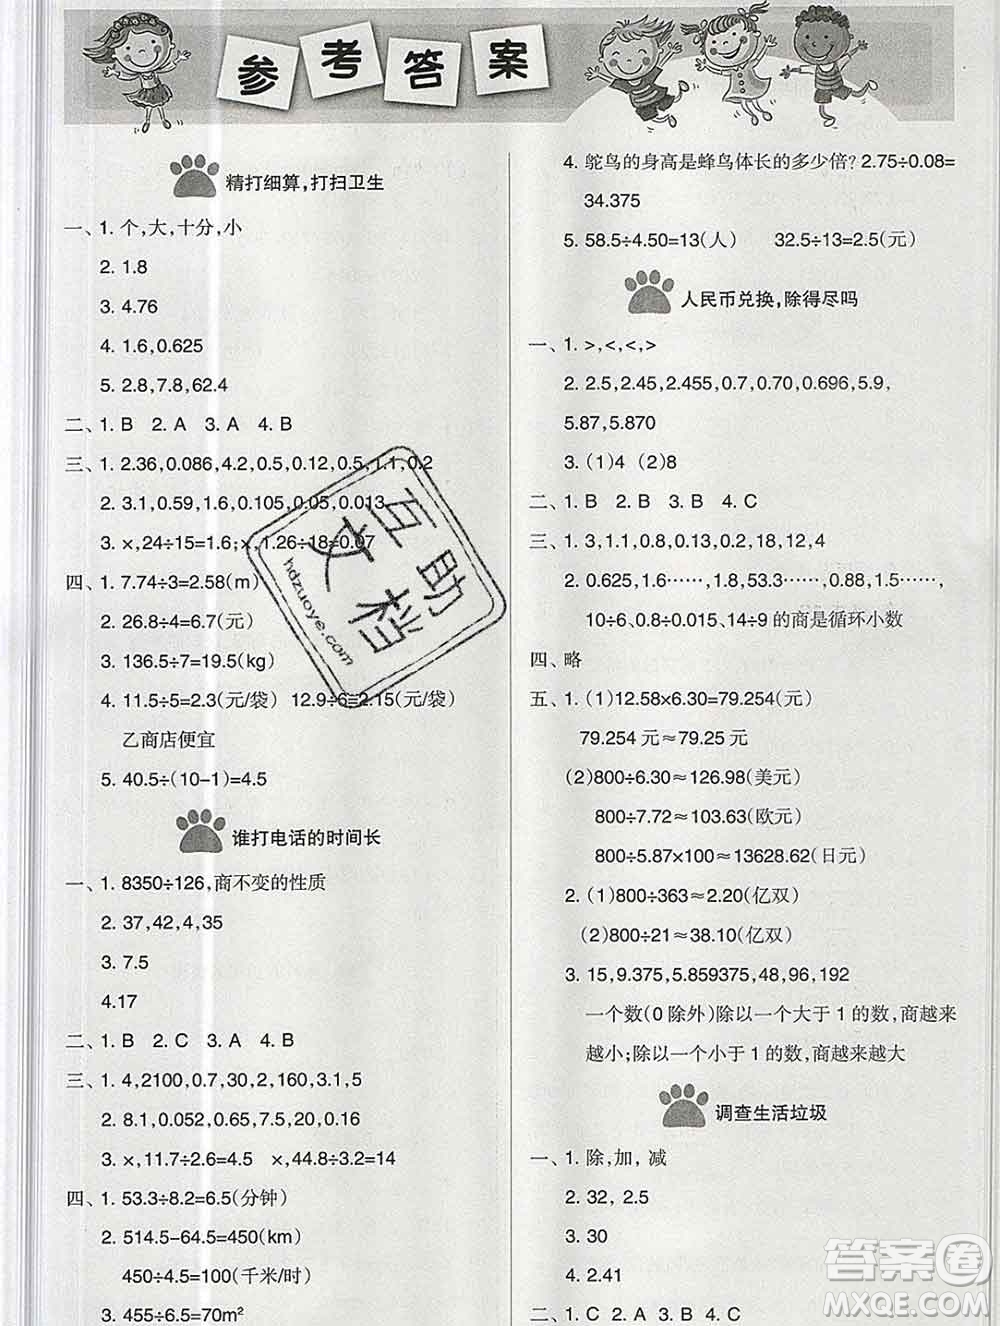 参考答案
精打细算,打扫卫生
一、1. 个,大,十分,小
2. 1.8
3. 4.76
4. 1.6,0.625
5. 2.8,7.8,62.4
二、1. B 2. A 3. A 4. B
三、1. 2.36,0.086,4.2,0.5,0.12,0.5,1.1,0.2
2. 3.1,0.59,1.6,0.105,0.05,0.013
3. ×,24÷15=1.6;×,1.26÷18=0.07
四、1. 7.74÷3=2.58(m)
2. 26.8÷4=6.7(元)
3. 136.5÷7=19.5(kg)
4. 11.5÷5=2.3(元/袋) 12.9÷6=2.15(元/袋)
乙商店便宜
5. 40.5÷(10-1)=4.5
谁打电话的时间长
一、1. 8350÷126,商不变的性质
2. 37,42,4,35
3. 7.5
4.17
二、1. B 2. C 3. A 4. B
三、1. 4,2100,0.7,30,2,160,3.1,5
2. 8.1,0.052,0.65,7.5,20,0.16
3. ×,11.7÷2.6=4.5 ×,44.8÷3.2=14
四、1. 53.3÷8.2=6.5(分钟)
2. 514.5-64.5=450(km)
450÷4.5=100(千米/时)
3. 455÷6.5=70m²
4. 鸵鸟的身高是蜂鸟体长的多少倍? 2.75÷0.08=
34.375
5. 58.5÷4.50=13(人) 32.5÷13=2.5(元)
人民币兑换,除得尽吗
一、1. >,<,<,>
2. 2.5,2.45,2.455,0.7,0.70,0.696,5.9,
5.87,5.870
3. (1)4 (2)8
二、1. B 2. B 3. B 4. C
三、1. 3,1.1,0.8,0.13,0.2,18,12,4
2. 0.625,1.6……,1.8,53.3……,0.88,1.5……,
10÷6、0.8÷0.015、14÷9 的商是循环小数
四、略
五、1. (1)12.58×6.30=79.254(元)
79.254 元≈79.25 元
(2)800÷6.30≈126.98(美元)
800÷7.72≈103.63(欧元)
800÷5.87×100≈13628.62(日元)
2. (1)800÷363≈2.20(亿双)
(2)800÷21≈38.10(亿双)
3. 15,9.375,5.859375,48,96,192
一个数(0 除外)除以一个大于 1 的数,商越来
越小;除以一个小于 1 的数,商越来越大
调查生活垃圾
一、1. 除,加, 减
2. 32, 2.5
3. 30
4. 2.41
二、1. C 2. A 3. B 4. C
互助文档
hdzuoye.com
答案圈
MXQE.COM